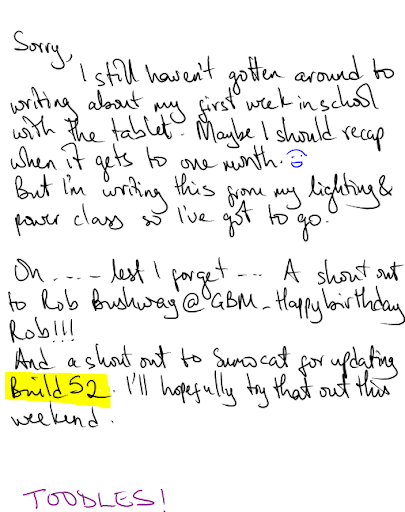 Sorry,
I still haven't gotten around to
writing about my first week in school
with the tablet. Maybe I should recap
when it gets to one month.
But I'm writing this from my lighting &
power class so I've got to go.
Oh .... lest I forget ... A shout out
to Rob Bushway @ GBM - Happy birthday
Rob!!!
And a shout out to Sumocat for updating
Build 52. I'll hopefully try that out this
weekend.
TOODLES!